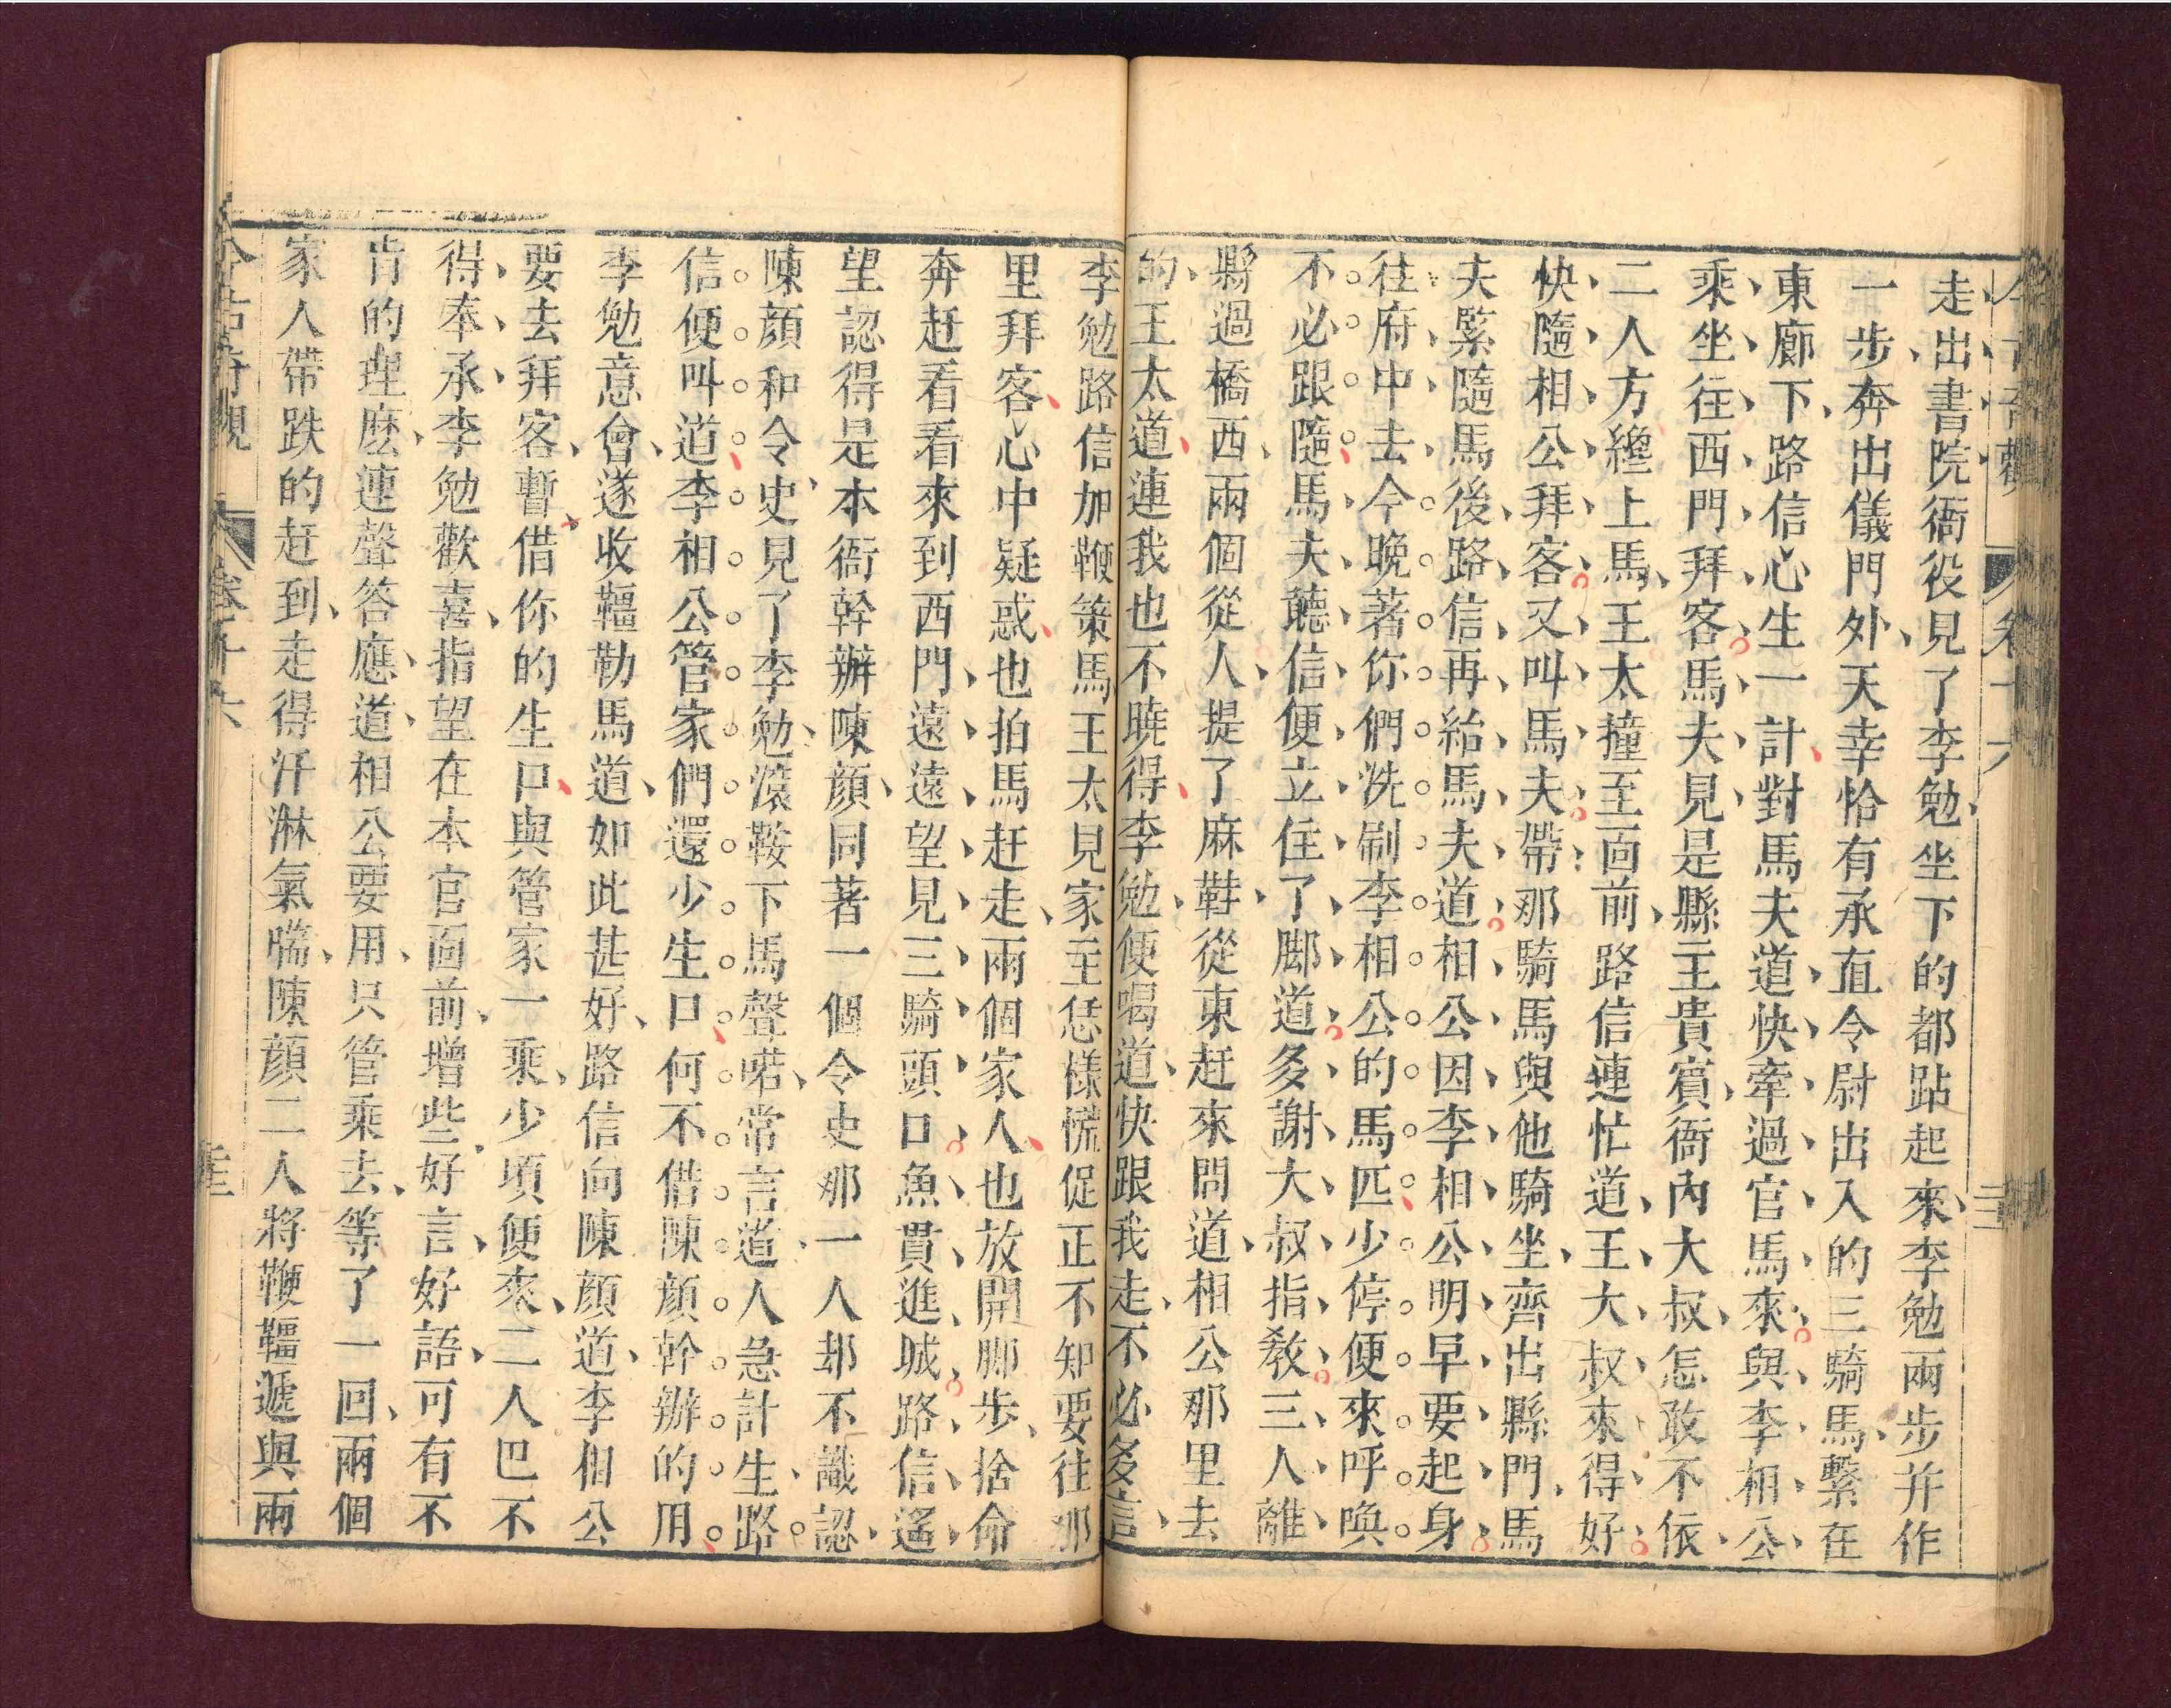 走出書院衙役見了李勉坐下的都跕起來李勉兩步并作
一步奔出儀門外天幸恰有承直令尉出入的三騎馬繫在
東廊下路信心生一計對馬夫道快牽過官馬來與李相公
乘坐往西門拜客馬夫見是縣主貴賓衙內大叔怎敢不依
二人方纔上馬王太撞至面前路信連忙道王大叔來得好
快隨相公拜客又叫馬夫帶那騎馬與他騎坐齊出縣門馬
夫緊隨馬後路信再紿馬夫道相公因李相公明早要起身
往府中去今晚著你們洗刷李相公的馬匹少停便來呼喚
不必跟隨馬夫聽信便立住了脚道多謝大叔指教三人離
縣過橋西兩個從人提了麻鞋從東赶來問道相公那里去
的王太道連我也不曉得李勉便喝道快跟我走不必多言
李勉路信加鞭策馬王太見家主恁樣慌促正不知要往那
里拜客心中疑惑也拍馬赶走兩個家人也放開脚步捨命
奔赶看看來到西門遠遠望見三騎頭口魚貫進城路信遙
望認得是本衙幹辦陳顏同著一個令史那一人却不識認
陳顏和令史見了李勉滾鞍下馬聲喏常言道人急計生路
信便叫道李相公管家們還少生口何不借陳顏幹辦的用
李勉意會遂收韁勒馬道如此甚好路信向陳顏道李相公
要去拜客暫借你的生口與管家一乘少頃便來二人巴不
得奉承李勉歡喜指望在本官面前增些好言好語可有不
肯的理麽連聲答應道相公要用只管乘去等了一回兩個
家人帶跌的赶到走得汗淋氣喘陳顏二人將鞭韁遞與兩
今古奇觀
卷十六